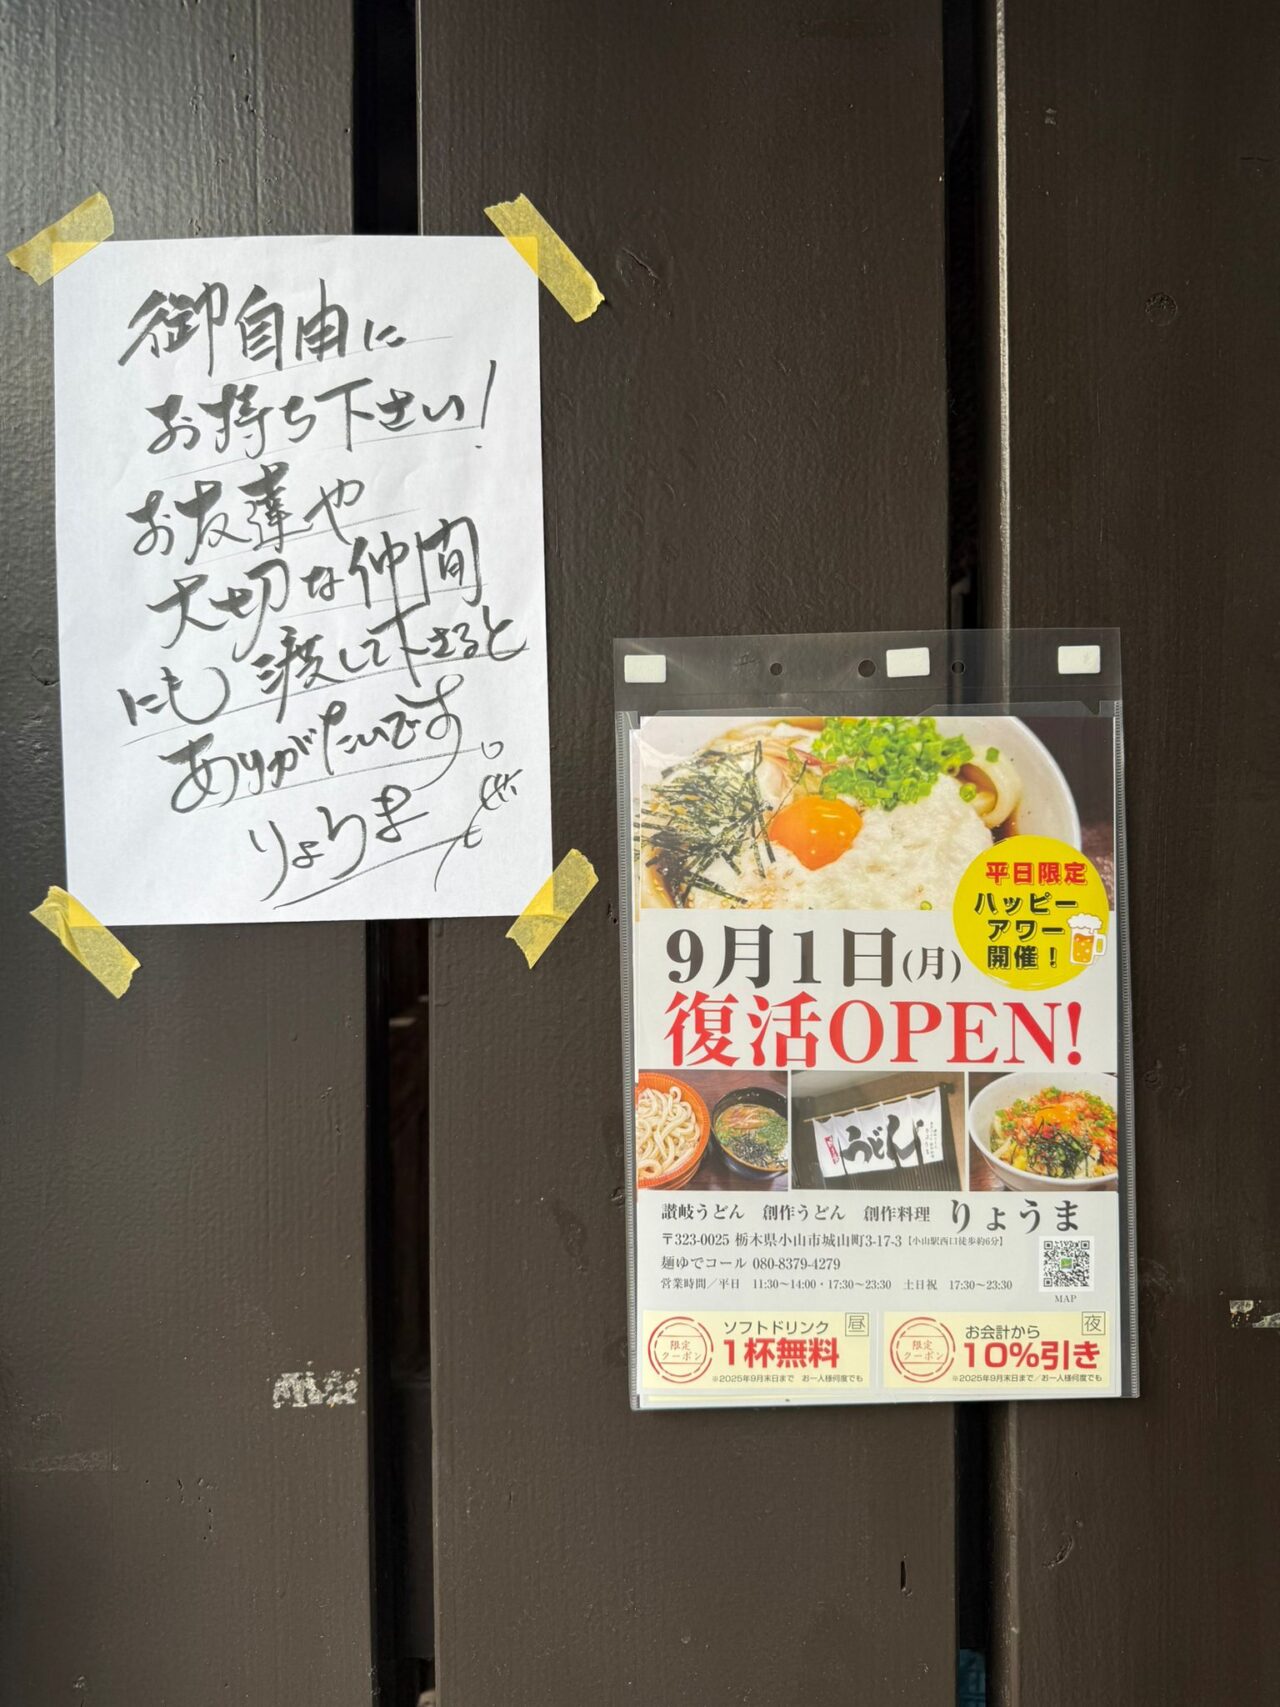 御自由に
お持ち下さい!
お友達や
大切な仲間
にも渡して下さると
ありがたいです。
りょうま
平日限定
ハッピー
アワー
開催！
9月1日(月)
復活OPEN!
うどん
讃岐うどん 創作うどん 創作料理 りょうま
〒323-0025 栃木県小山市城山町3-17-3【小山駅西口徒歩約6分】
麺ゆでコール 080-8379-4279
営業時間／平日 11:30〜14:00・17:30〜23:30 土日祝 17:30〜23:30
MAP
限定
クーポン
ソフトドリンク 昼
1杯無料
※2025年9月末日まで お一人様何度でも
限定
クーポン
お会計から 夜
10%引き
※2025年9月末日まで／お一人様何度でも